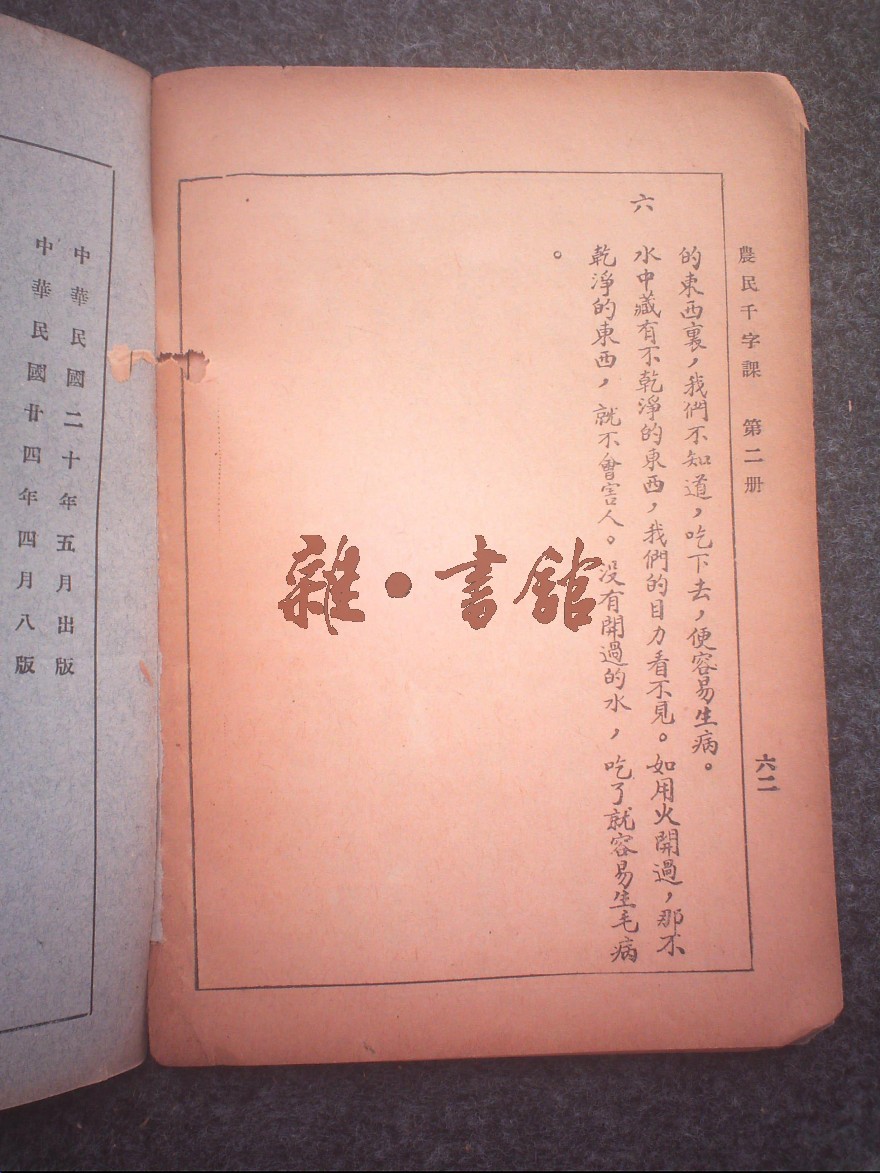 農民千字課 第二册
六二
的東西裏，我們不知道，吃下去，便容易生病。
六 水中藏有不乾淨的東西，我們的目力看不見。如用火開過，那不
乾淨的東西，就不會害人。沒有開過的水，吃了就容易生毛病
。
雜·書舘
中華民國二十年五月出版
中華民國廿四年四月八版